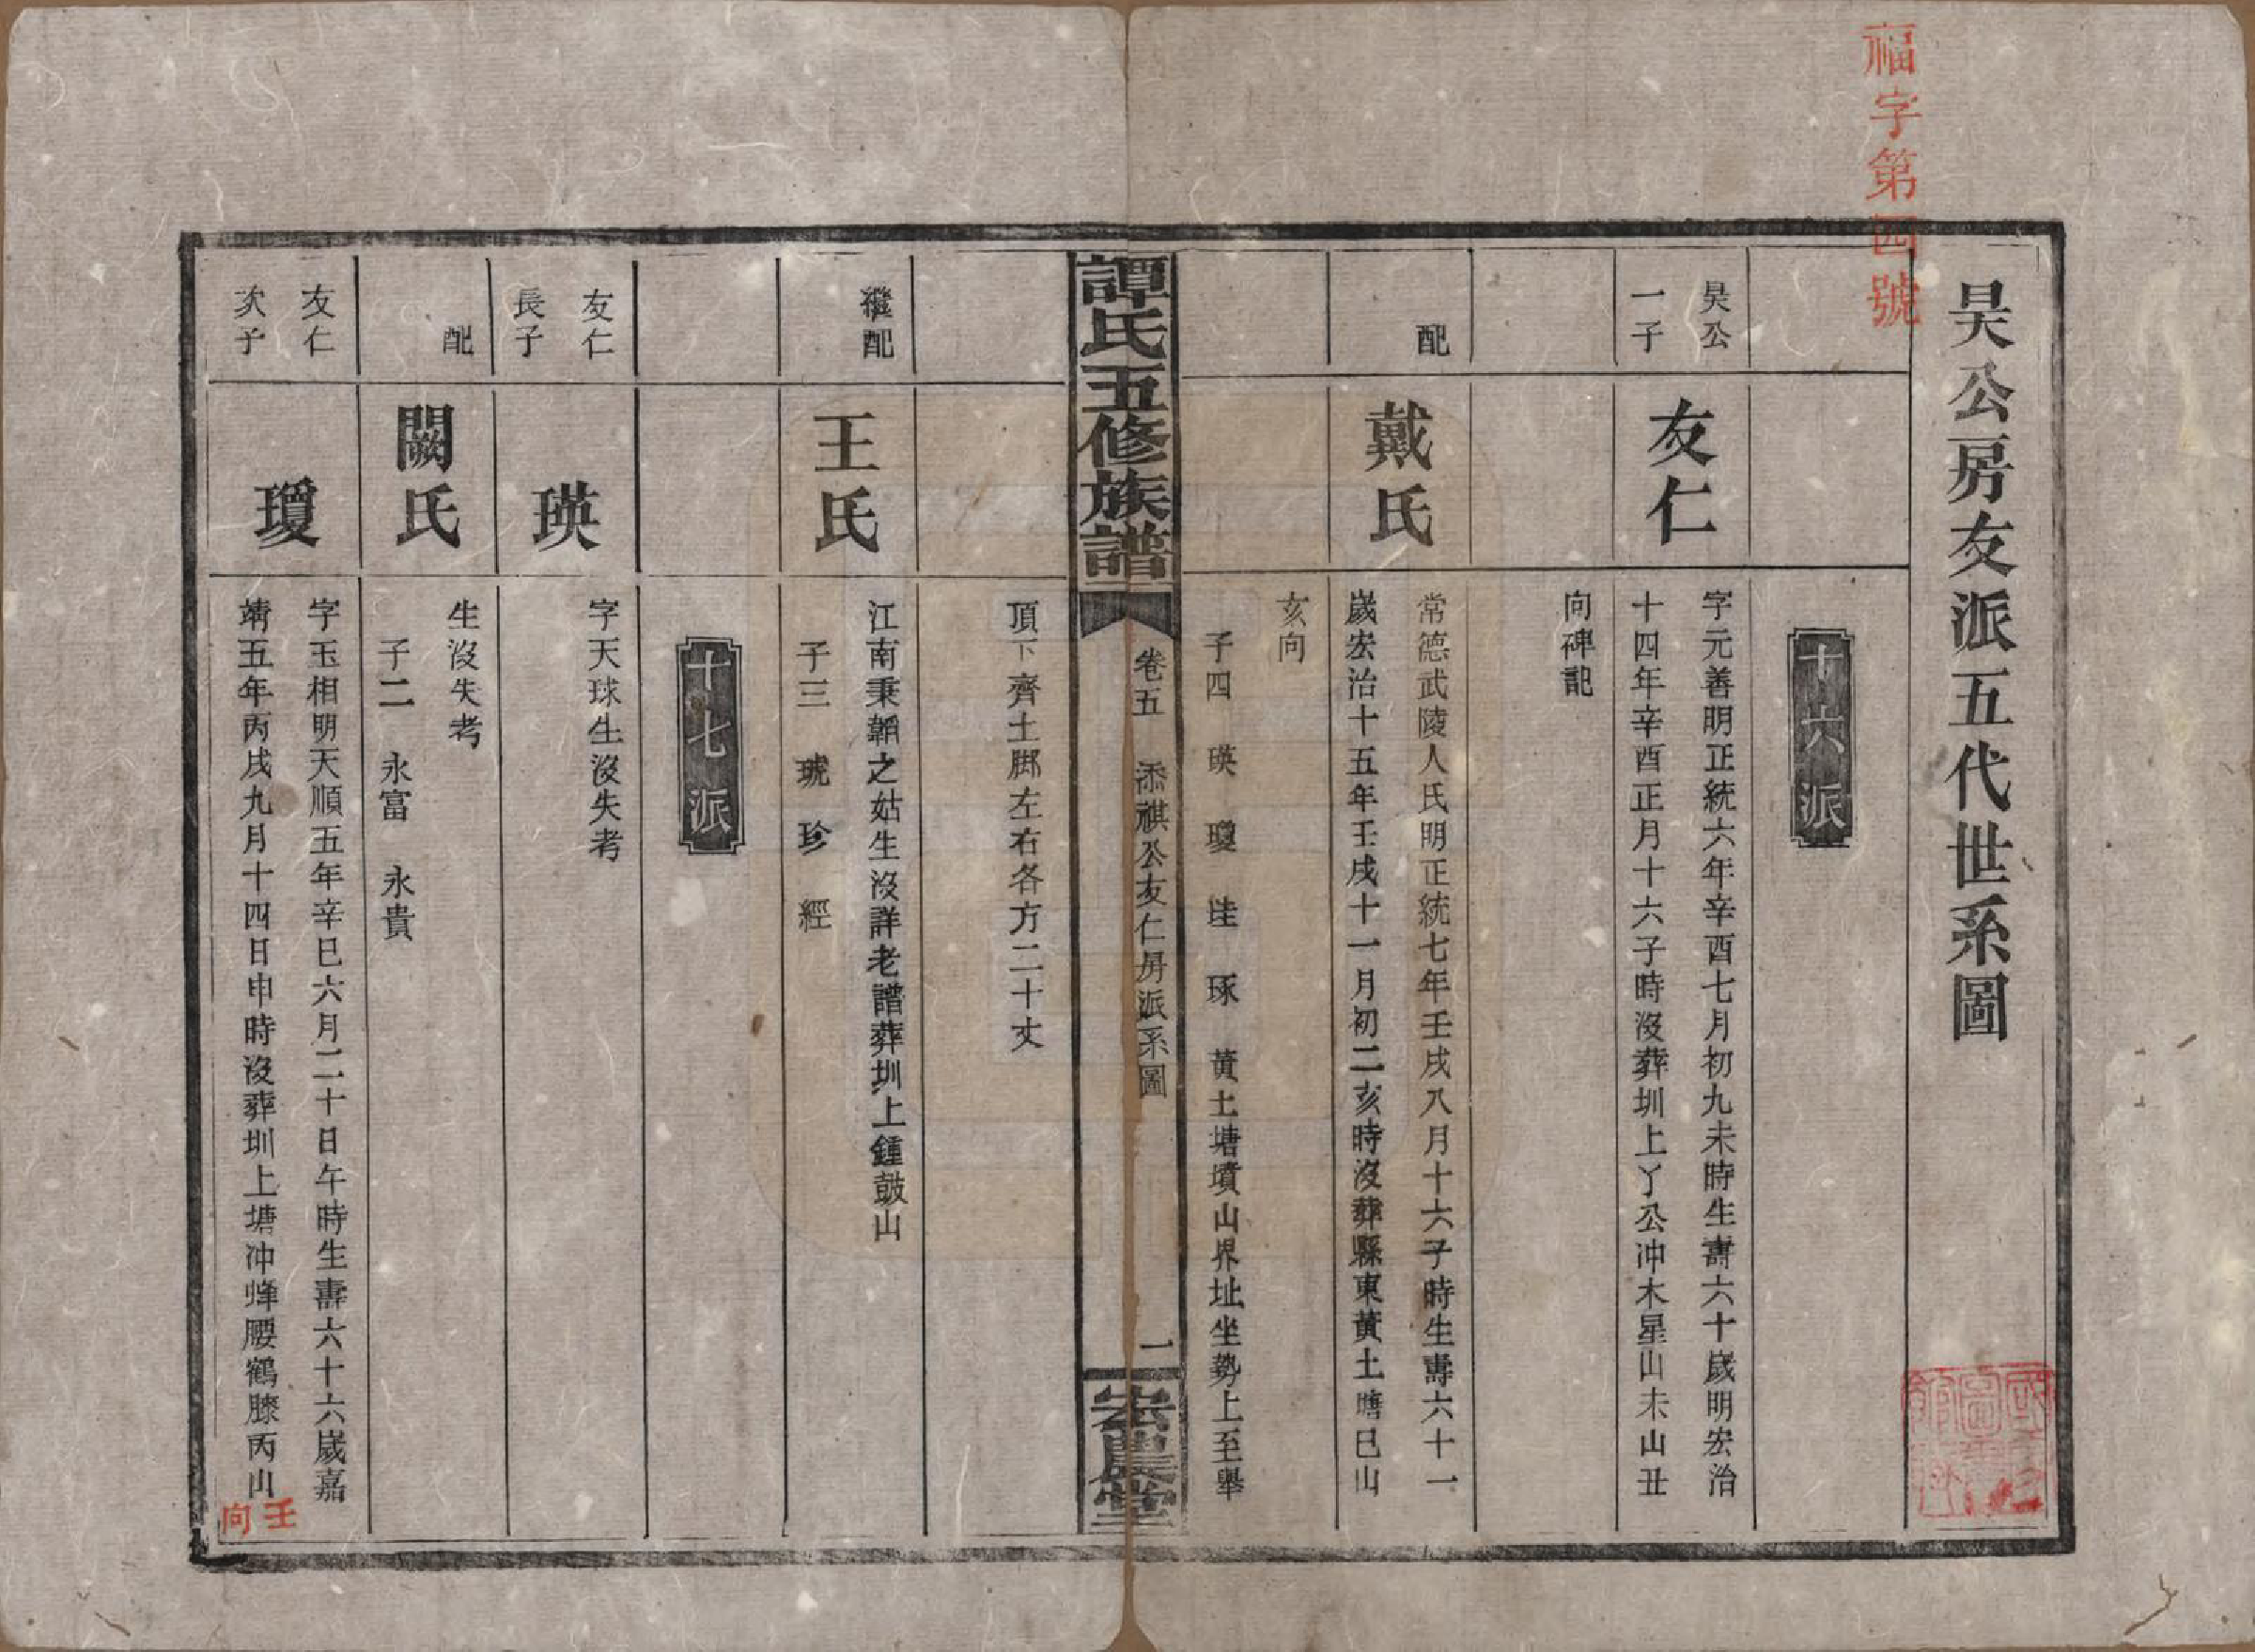 福字第四號
昊公房友派五代世系圖
十六派
昊公
一子
友仁
字元善明正統六年辛酉七月初九未時生壽六十歲明宏治
十四年辛酉正月十六子時沒葬圳上丫公冲木星山未山丑
向碑記
配
戴氏
常德武陵人氏明正統七年壬戌八月十六子時生壽六十一
歲宏治十五年壬戌十一月初二亥時沒葬縣東黃土塘巳山
亥向
子四 瑛 瓊 珪 琢 黃土塘墳山界址坐勢上至舉
譚氏五修族譜
卷五 添祺公友仁房派系圖
一
宏農堂
頂下齊土腳左右各方二十丈
繼配
王氏
江南秉韜之姑生沒詳老譜葬圳上鍾鼓山
子三 琥 珍 經
十七派
友仁
長子
瑛
字天球生沒失考
配
闕氏
生沒失考
子二 永富 永貴
友仁
次子
瓊
字玉相明天順五年辛巳六月二十日午時生壽六十六歲嘉
靖五年丙戌九月十四日申時沒葬圳上塘冲蜂腰鶴膝丙山
壬向